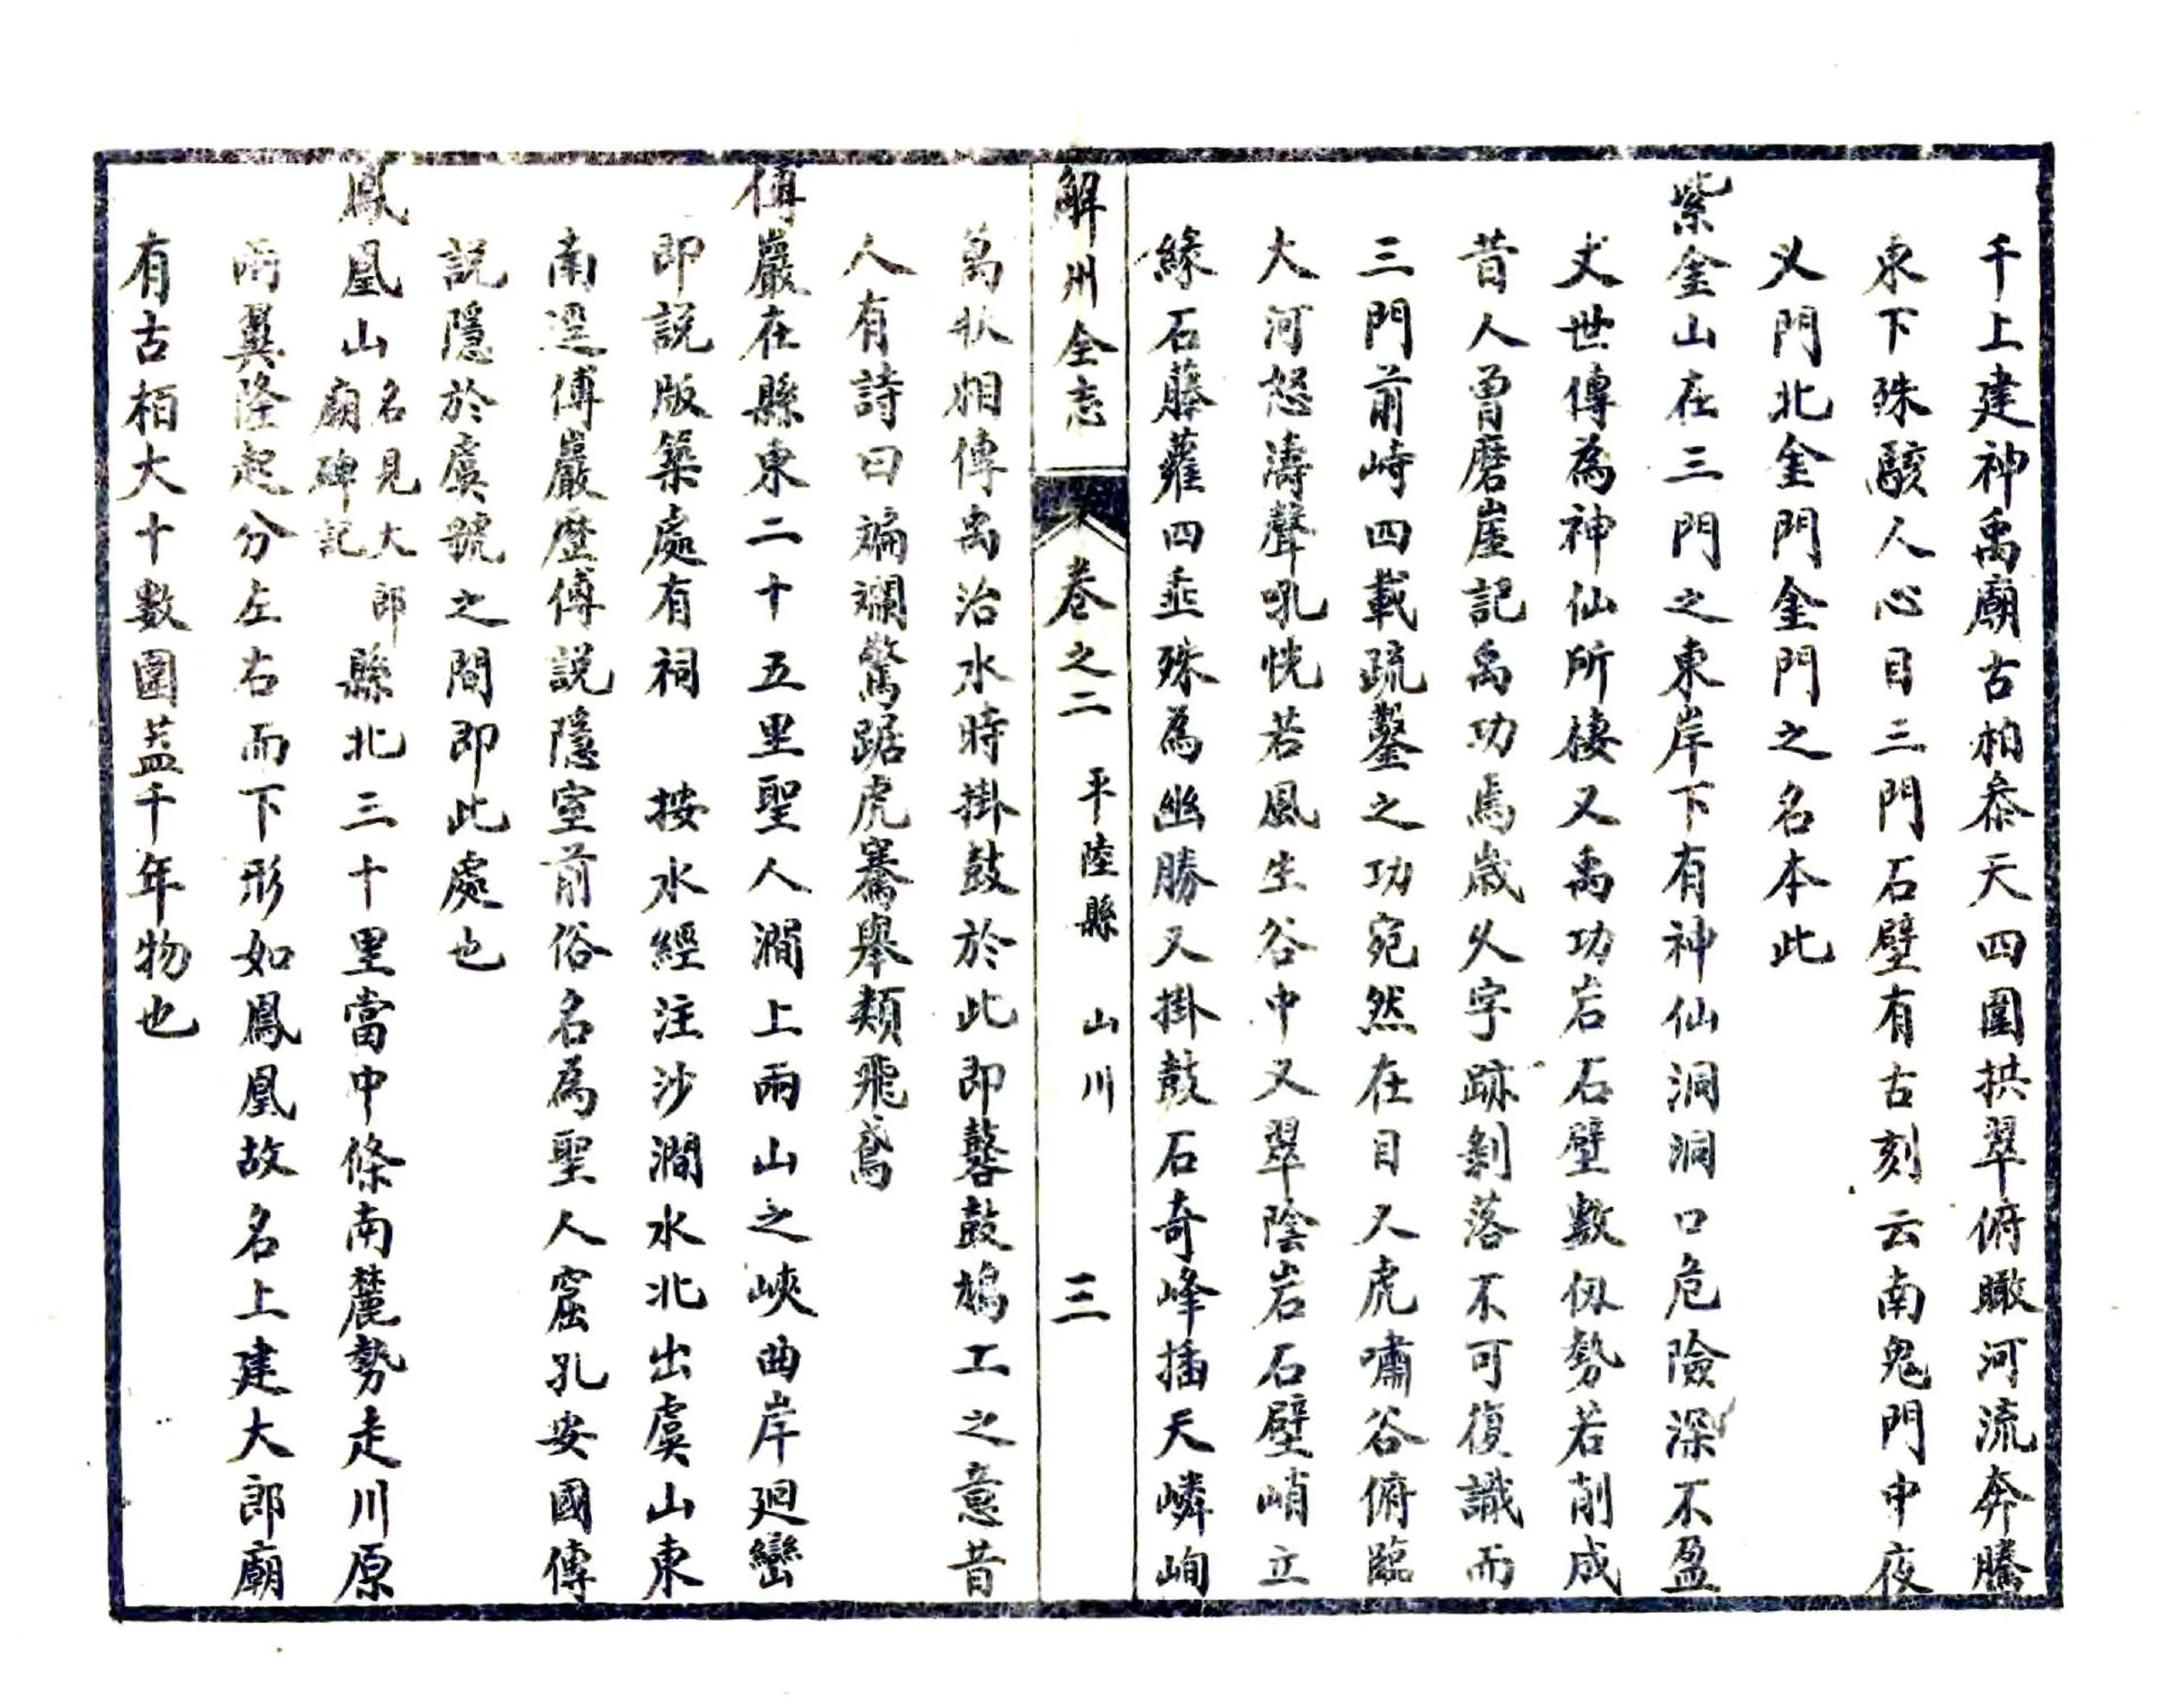 千上建神禹廟古柏叅天四圍拱翠俯瞰河流奔騰
東下殊駭人心目三門石壁有古刻云南鬼門中夜
乂門北金門金門之名本此
紫金山在三門之東岸下有神仙洞洞口危險深不盈
丈世傳為神仙所棲又禹功岩石壁數仭勢若削成
昔人曾磨崖記禹功焉歲久字跡剝落不可復識而
三門前峙四載疏鑿之功宛然在目又虎嘯谷俯臨
大河怒濤聲吼恍若風生谷中又翠陰岩石壁峭立
緣石藤蘿四垂殊為幽勝又掛鼓石奇峰插天嶙峋
解州全志 卷之二 平陸縣 山川 三
萬狀相傳禹治水時掛鼓於此即鼛鼓鳩工之意昔
人有詩曰斒斕驚踞虎騫舉類飛鳶
傅巖在縣東二十五里聖人澗上兩山之峽曲岸廻巒
即說版築處有祠 按水經注沙澗水北出虞山東
南逕傅巖歷傅說隱室前俗名為聖人窟孔安國傳
說隱於虞虢之間即此處也
鳳凰山名見大郎廟碑記縣北三十里當中條南麓勢走川原
兩翼隆起分左右而下形如鳳凰故名上建大郎廟
有古栢大十數圍葢千年物也